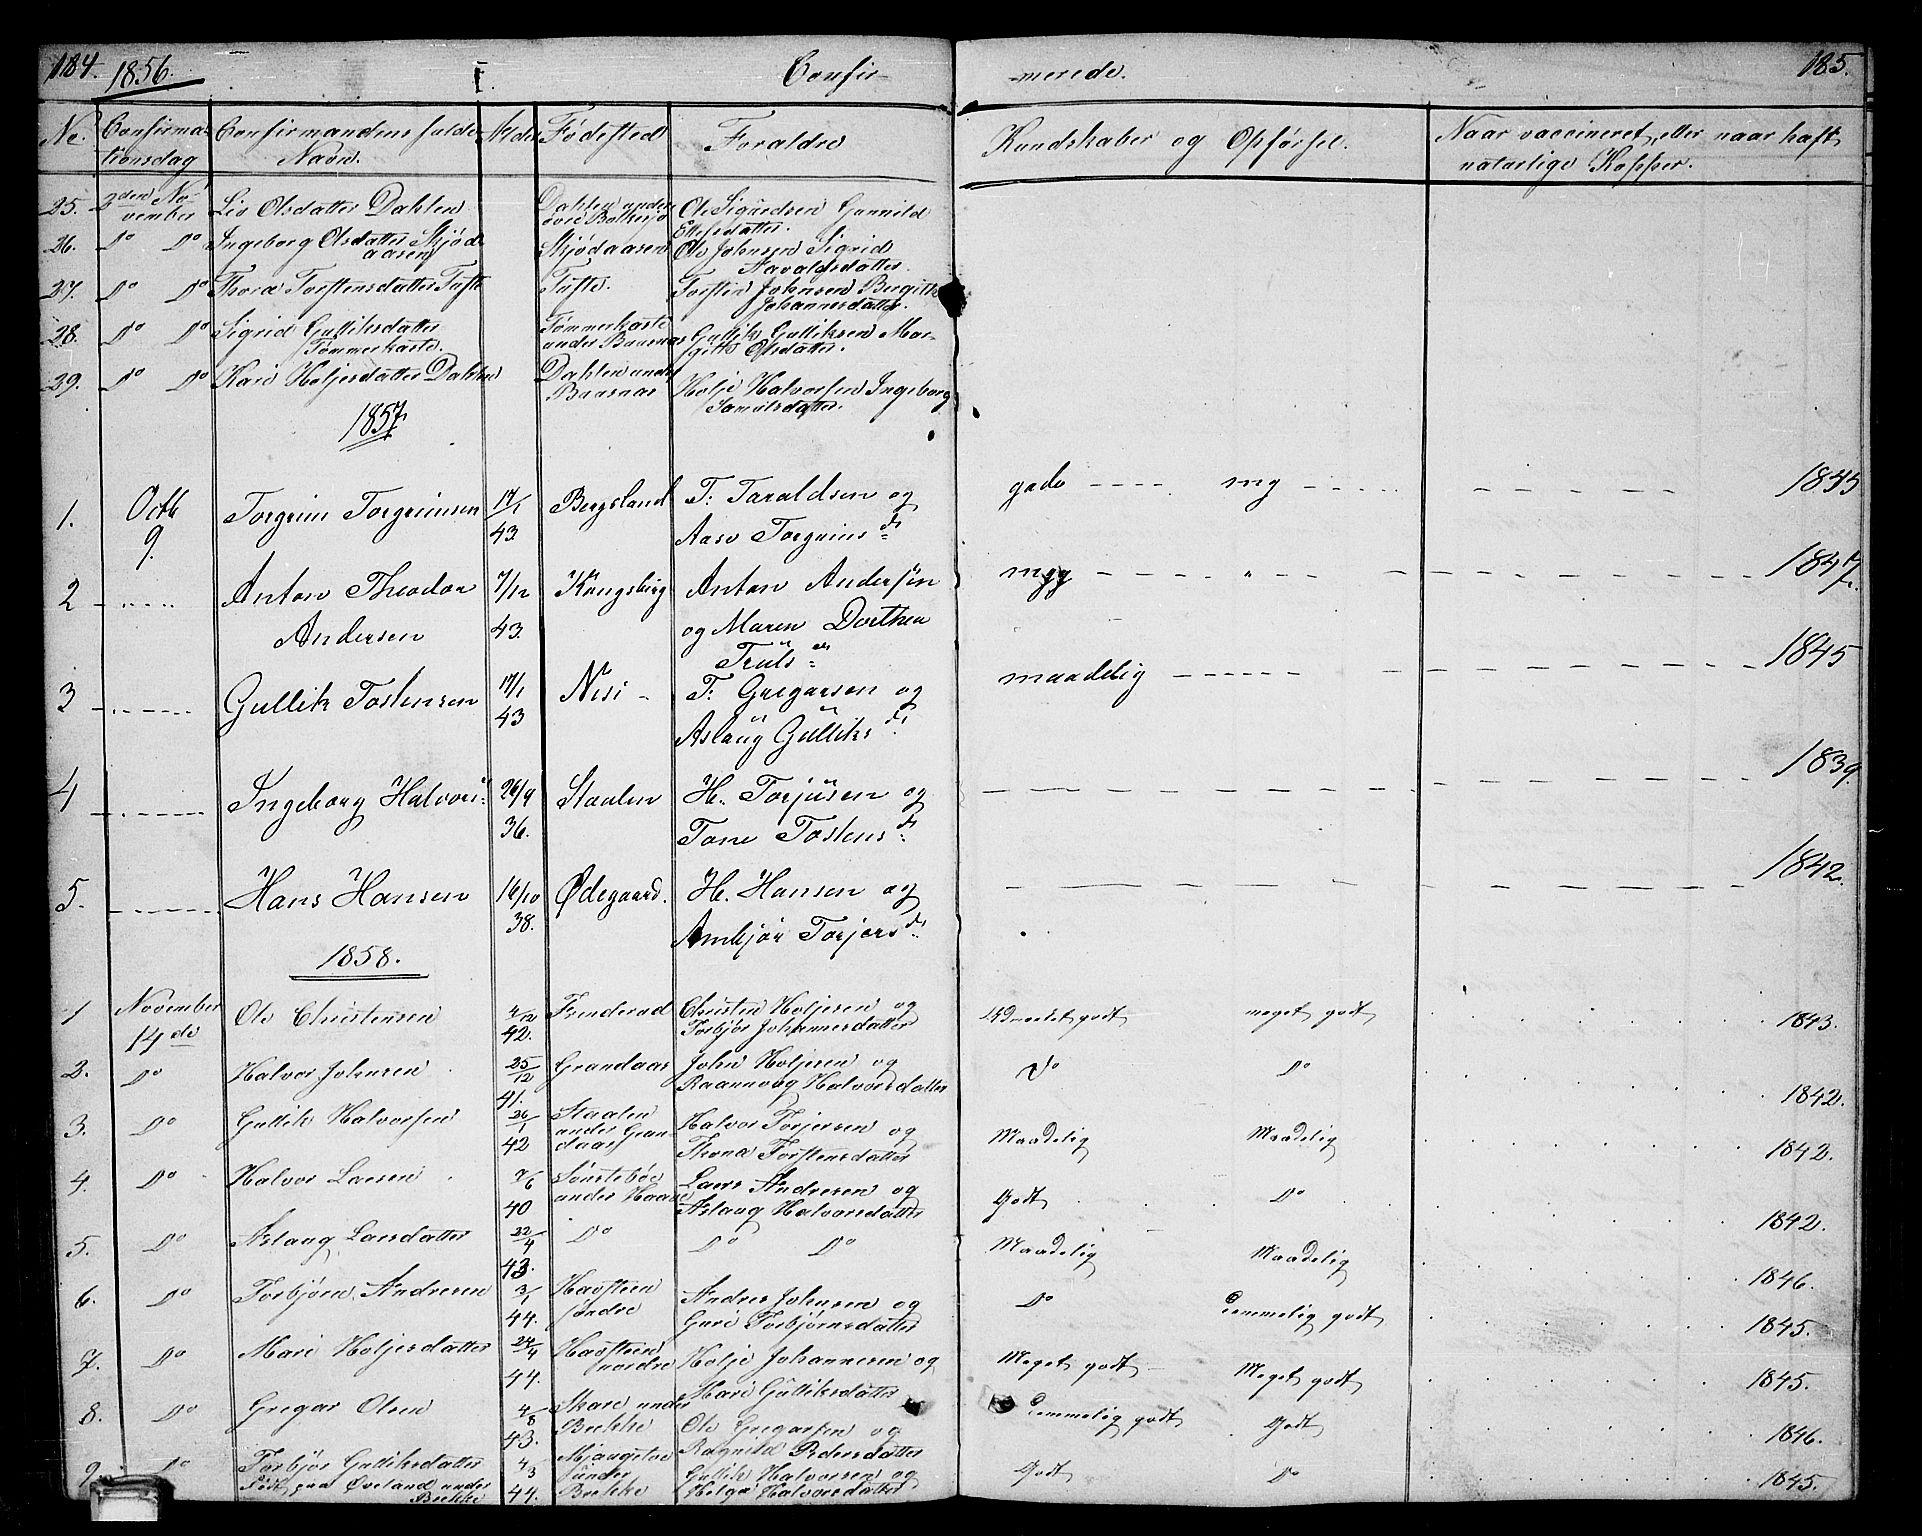 184. 1856. I. Confir- merede. 185.
No. Confirma- Confirmandens fulde Alder Fødested Forældre Kundskaber og Opførsel. Naar vaccineret, eller naar haft
tionsdag Navn. naturlige Kopper.
25. 2den No- Liv Olsdatter Dahlen Dahlen under Ole Sigurdsen Gunnild
vember øvre Bolkesjø Ellefsdatter.
26. Do Do Ingeborg Olsdatter Skjød- Skjødaasen Ole Johnsen Sigrid
aasen Aavaldsdatter.
27. Do Do Thora Torstensdatter Tufte Tufte. Torsten Johnsen Bergitte
Johannesdatter.
28. Do Do Sigrid Gulliksdatter Tømmerkaste Gullik Gulliksen Mar-
Tømmerkaste. under Baarnas git Olsdatter.
29. Do Do Kari Holjesdatter Dahlen Dahlen under Holje Halvorsen Ingeborg
Baarnas Samuelsdatter.
1857
1. Octb Torgrim Torgrimsen 17/1 Bergsland T: Taraldsen og gode mg 1845
9. 43. Aase Torgrims d:
2 Anton Theodor 7/12 Kongsberg Anton Andersen mgg " 1847.
Andersen 43. og Maren Dorthea
Truls
3 Gullik Tostensen 17/1 Nesi T: Gregarsen og maadelig 1845
43 Aslaug Gulliks d:
4 Ingeborg Halvors: 26/9 Staulen H. Torjusen og 1839
36. Tone Tostens d:
5. Hans Hansen 16/10 Ødegaard. H. Hansen og 1842.
38. Anbjør Torjers d:
1858.
1 November Ole Christensen 4/12 Funderud Christen Holjesen og Udmerket godt meget godt 1843.
14de 42. Torbjør Johannesdatter
2. Do Halvor Johnsen 25/12 Grandaas John Holjesen og Do Do 1842.
41. Raannoug Halvorsdatter
3. Do Gullik Halvorsen 26/1 Staalen Halvor Torjersen og Maadelig Maadelig 1842.
42 under Gran- Thona Torstensdatter
daas
4. Do Halvor Larsen 7/6 Sønstebøe Lars Andresen og Godt Do 1842.
40 under Haave Aslaug Halvorsdatter
5. Do Aslaug Larsdatter 22/4 Do Do Do Maadelig Maadelig 1846.
43.
6. Do Torbjørn Andresen 3/1 Havsteen Andres Johnsen og Do Temmelig godt 1845.
44. søndre Guri Torbjørnsdatter
7. Do Mari Holjesdatter 24/4 Havsteen Holje Johannesen og Meget godt Meget godt 1845.
44. nordre Mari Gulliksdatter
8. Do Gregar Olsen 4/8 Skare under Ole Gregarsen og Temmelig godt Godt 1846.
43. Brekke Ragnild Pedersdatter
9. Do Torbjør Gulliksdatter 4/3 under Gullik Halvorsen og Godt Do 1845.
Født paa Øveland under 44. Brekke Helga Halvorsdatter
Brekke